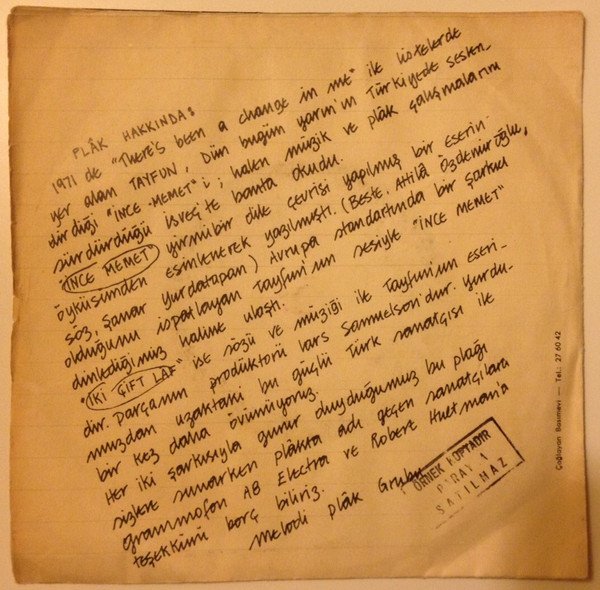 PLÂK HAKKINDA:
1971 de "There's been a change in me" ile listelerde
yer alan TAYFUN, Dün bugün yarın'ın Türkiyede seslen-
dirdiği "İNCE MEMET"i; halen müzik ve plâk çalışmalarını
sürdürdüğü İsveç'te banta okudu.
"İNCE MEMET" yirmibir dile çevrisi yapılmış bir eserin
öyküsünden esinlenerek yazılmıştı. (Beste, Attilâ Özdemiroğlu,
söz, Şanar Yurdatapan) Avrupa standartında bir şarkıcı
olduğunu ispatlayan Tayfun'un sesiyle "İNCE MEMET"
dinlediğimiz haline ulaştı.
"İKİ ÇİFT LAF" ise sözü ve müziği ile Tayfun'un eseri-
dir. Parçanın prodüktörü Lars Samuelson'dur. Yurdu-
muzdan uzaktaki bu güçlü Türk sanatçısı ile
bir kez daha övünüyoruz.
Her iki şarkısıyla gurur duyduğumuz bu plağı
sizlere sunarken plâkta adı geçen sanatçılara
grammofon AB Electra ve Robert Hultman'a
teşekkürü borç biliriz.
Melodi Plâk Grubu
ÖRNEK KOPTADIR
PARAYLA
SATILMAZ
Çağlayan Basımevi — Tel.: 27 60 42